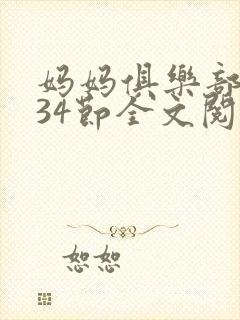 妈妈俱樂部
34節全文閱
恕恕